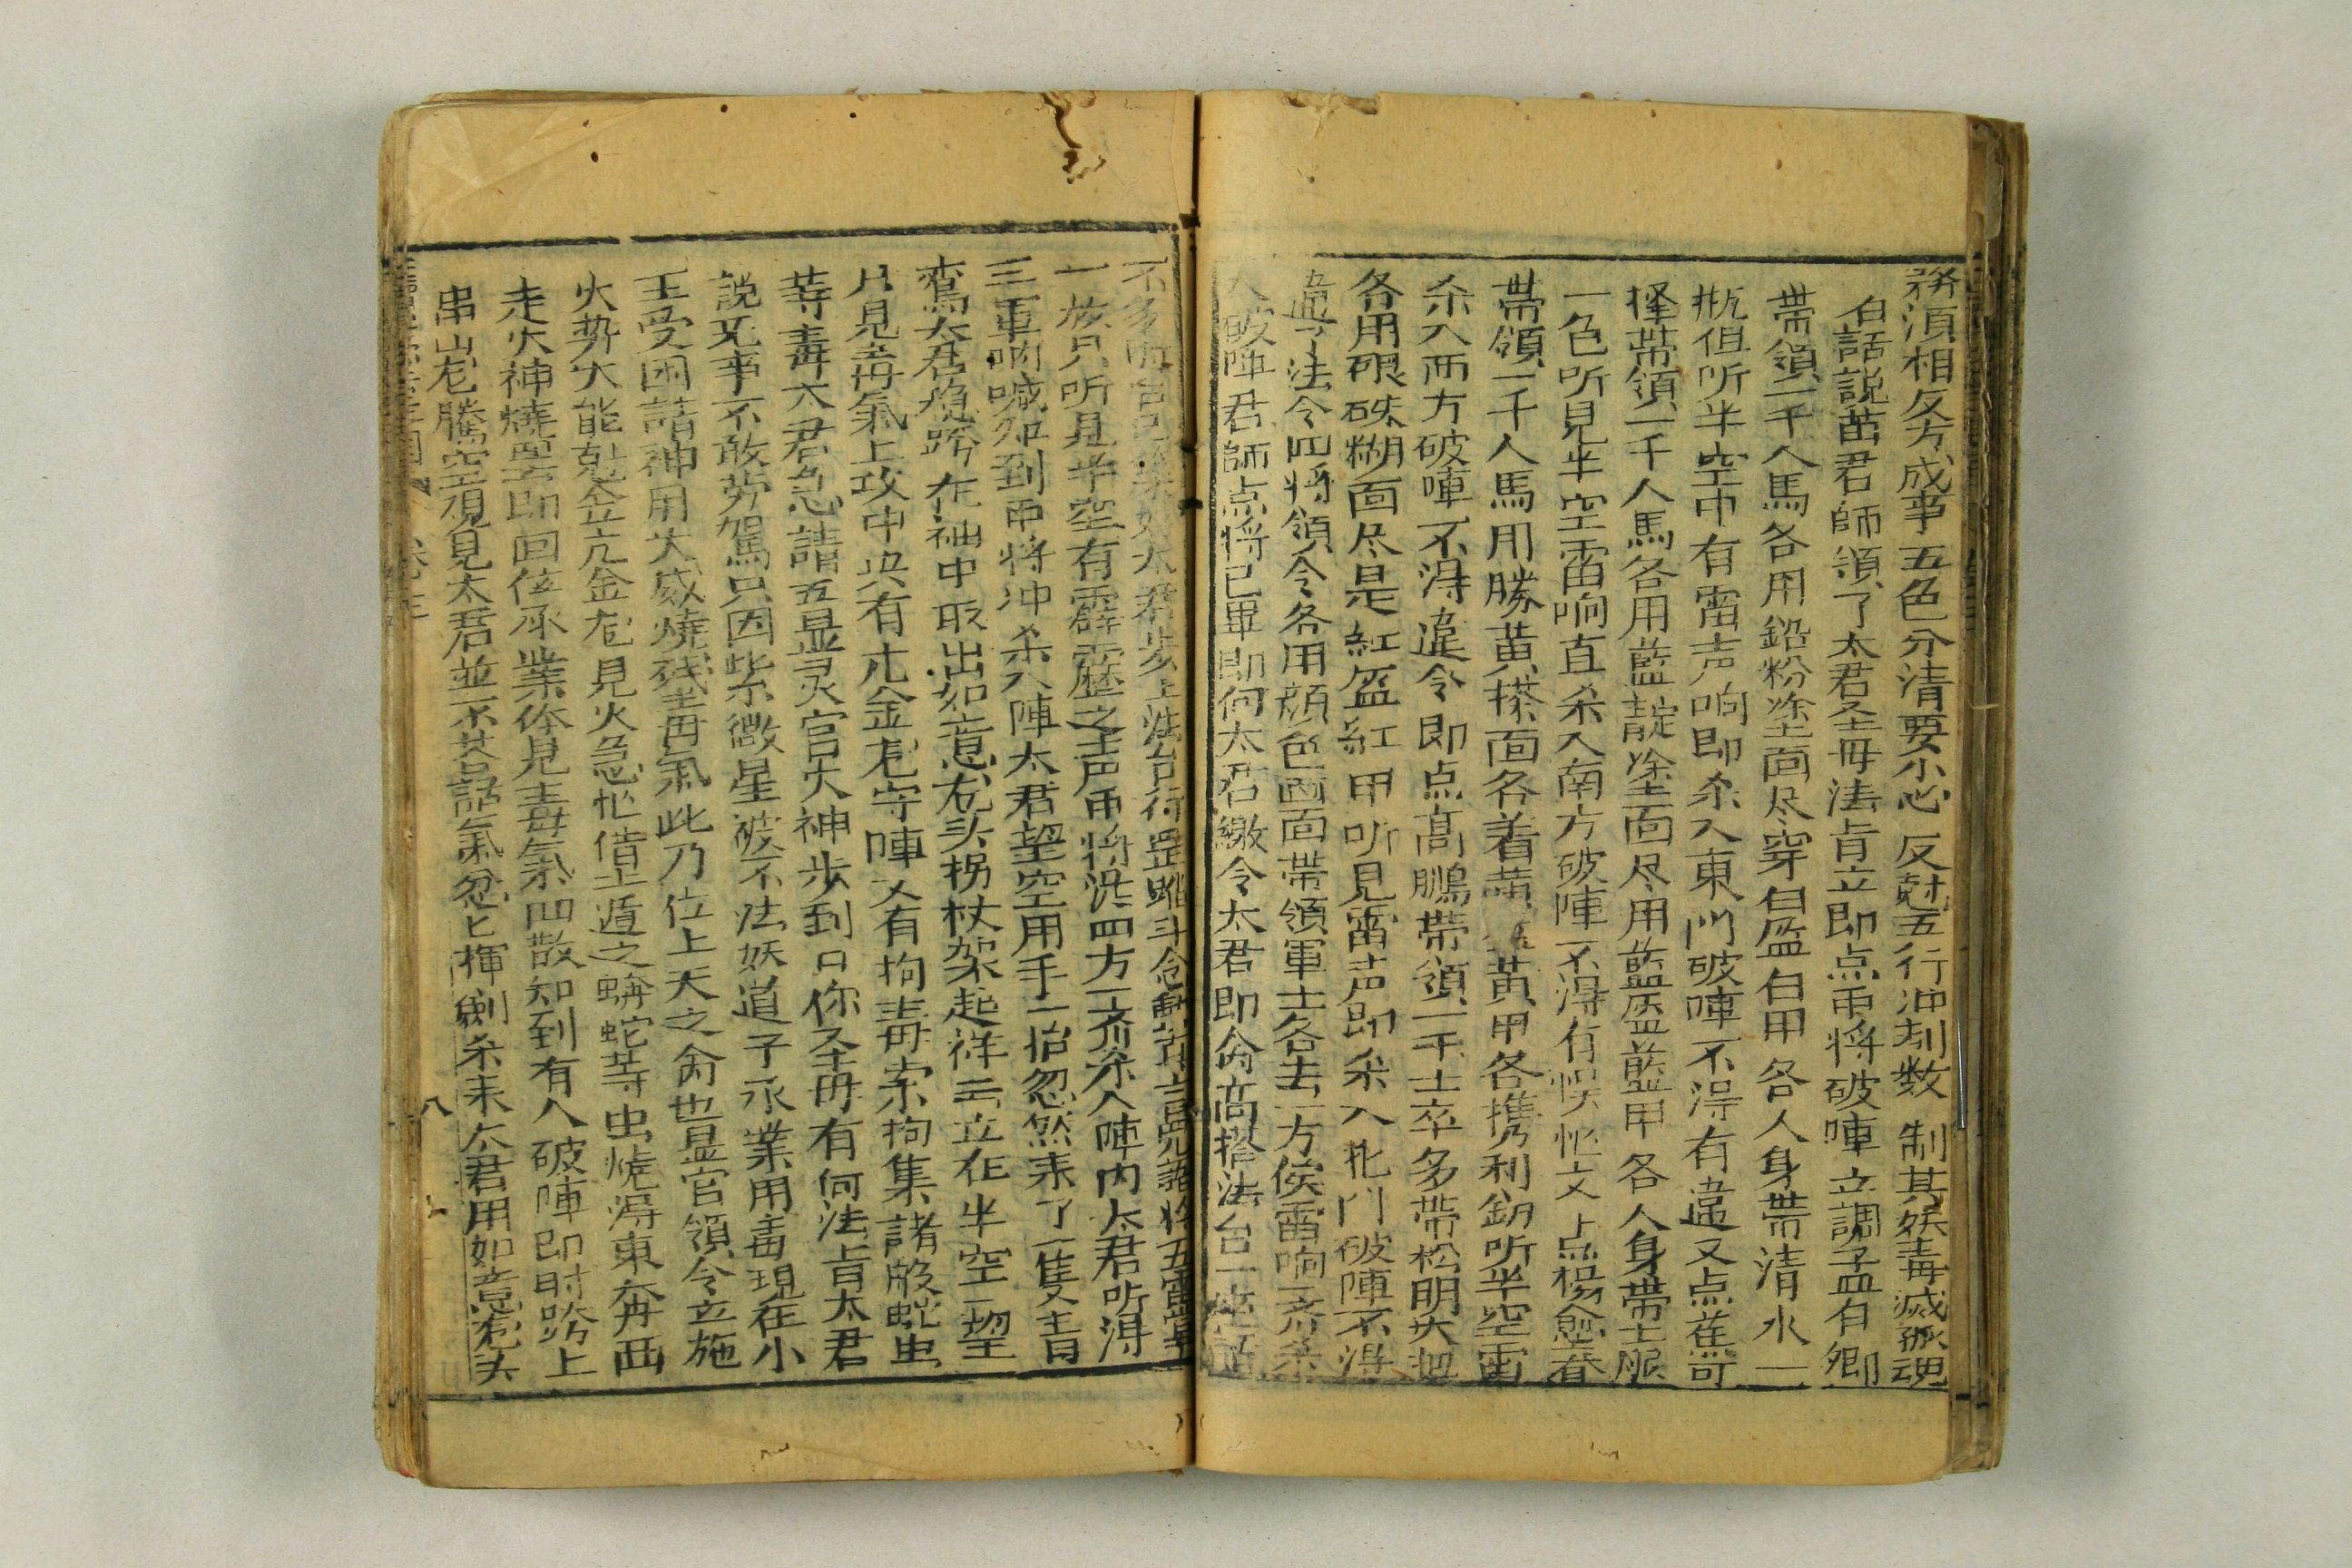 務須相夂方成事五色分清要小心反尅五行冲刦数制其妖毒滅孤魂
白話説苗君師領了太君圣母法肯立即点两将破陣立調孟有卿
帶領一千人馬各用鉛粉塗面尽穿白盔白甲各人身帶清水一
瓶但听半空中有雷声响即杀入東門破陣不淂有違又点蕉可
择帶領一千人馬各用藍靛塗面尽用藍盔藍甲各人身帶土
一色听見半空雷响直杀入南方破陣不淂有悮忙又点楊愈春
帶領一千人馬用勝黄搽面各着黄黄甲各携利釰听半空雷
杀入西方破陣不淂違令即点髙鵬帶領一千士卒多带松明火把
各用硍硃糊面尽是紅盔紅甲听見雷声即杀入北門破陣不淂
違了法令四将領令各用顔色画面帶領軍士各去一方候雷响一齐杀
入破陣君師点将已畢即何太君繳令太君即命髙搭法台一座話
不多太君步上法台行罡踏斗念諸将五雷
一族只听見半空有霹靂之声两将從四方一齐杀入陣内太君听淂
三軍吶喊知到两将冲杀入陣太君望空用手一招忽然耒了一隻青
鸞太君跨在袖中取出如意尨头拐杖架起祥云立在半空一望
只見毒氣上攻中央有亢金尨守陣又有拘毒索拘集諸般蛇虫
等毒太君急請五显灵官火神步到曰你圣母有何法肯太君
説无事不敢劳駕只因紫微星被不法妖道子承業用毒現在小
王受困請神用火威燒残毒氣此乃位上天之命也显官領令立施
火势火能尅金亢金尨見火急忙借土遁之蟒蛇等虫燒淂東奔西
走火神燒罢即回位承業徒見毒氣四散知到有人破陣即时跨上
串山尨騰空視見太君並不答話氣忿匕揮劍杀耒太君用如意尨头
卷三 八